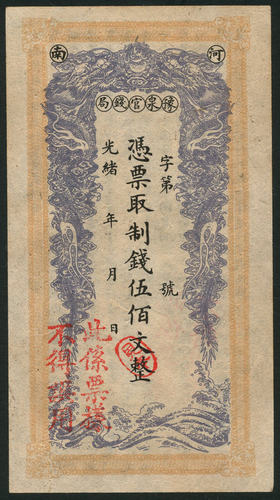 河南
豫泉官錢局
字第　號
憑票取制錢伍佰文整
光緒　年　月　日
此係票樣
不得取用